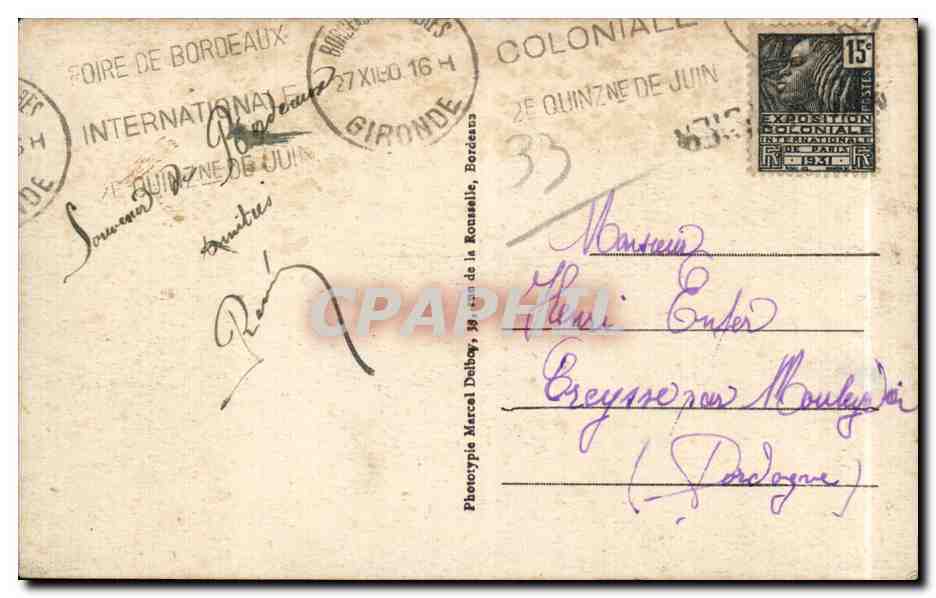 FOIRE DE BORDEAUX
INTERNATIONALE
2E QUINZNE DE JUIN
27 XII 30 16 H
GIRONDE
COLONIALE
2E QUINZNE DE JUIN
15c
POSTES
EXPOSITION
COLONIALE
INTERNATIONALE
DE PARIS
1931
33
Souvenir de Bordeaux
Amitiés
René
Phototypie Marcel Delboy, rue de la Rousselle, Bordeaux
Monsieur
Henri Enfer
Creysse par Mouleydier
(Dordogne)
CPAPHIL